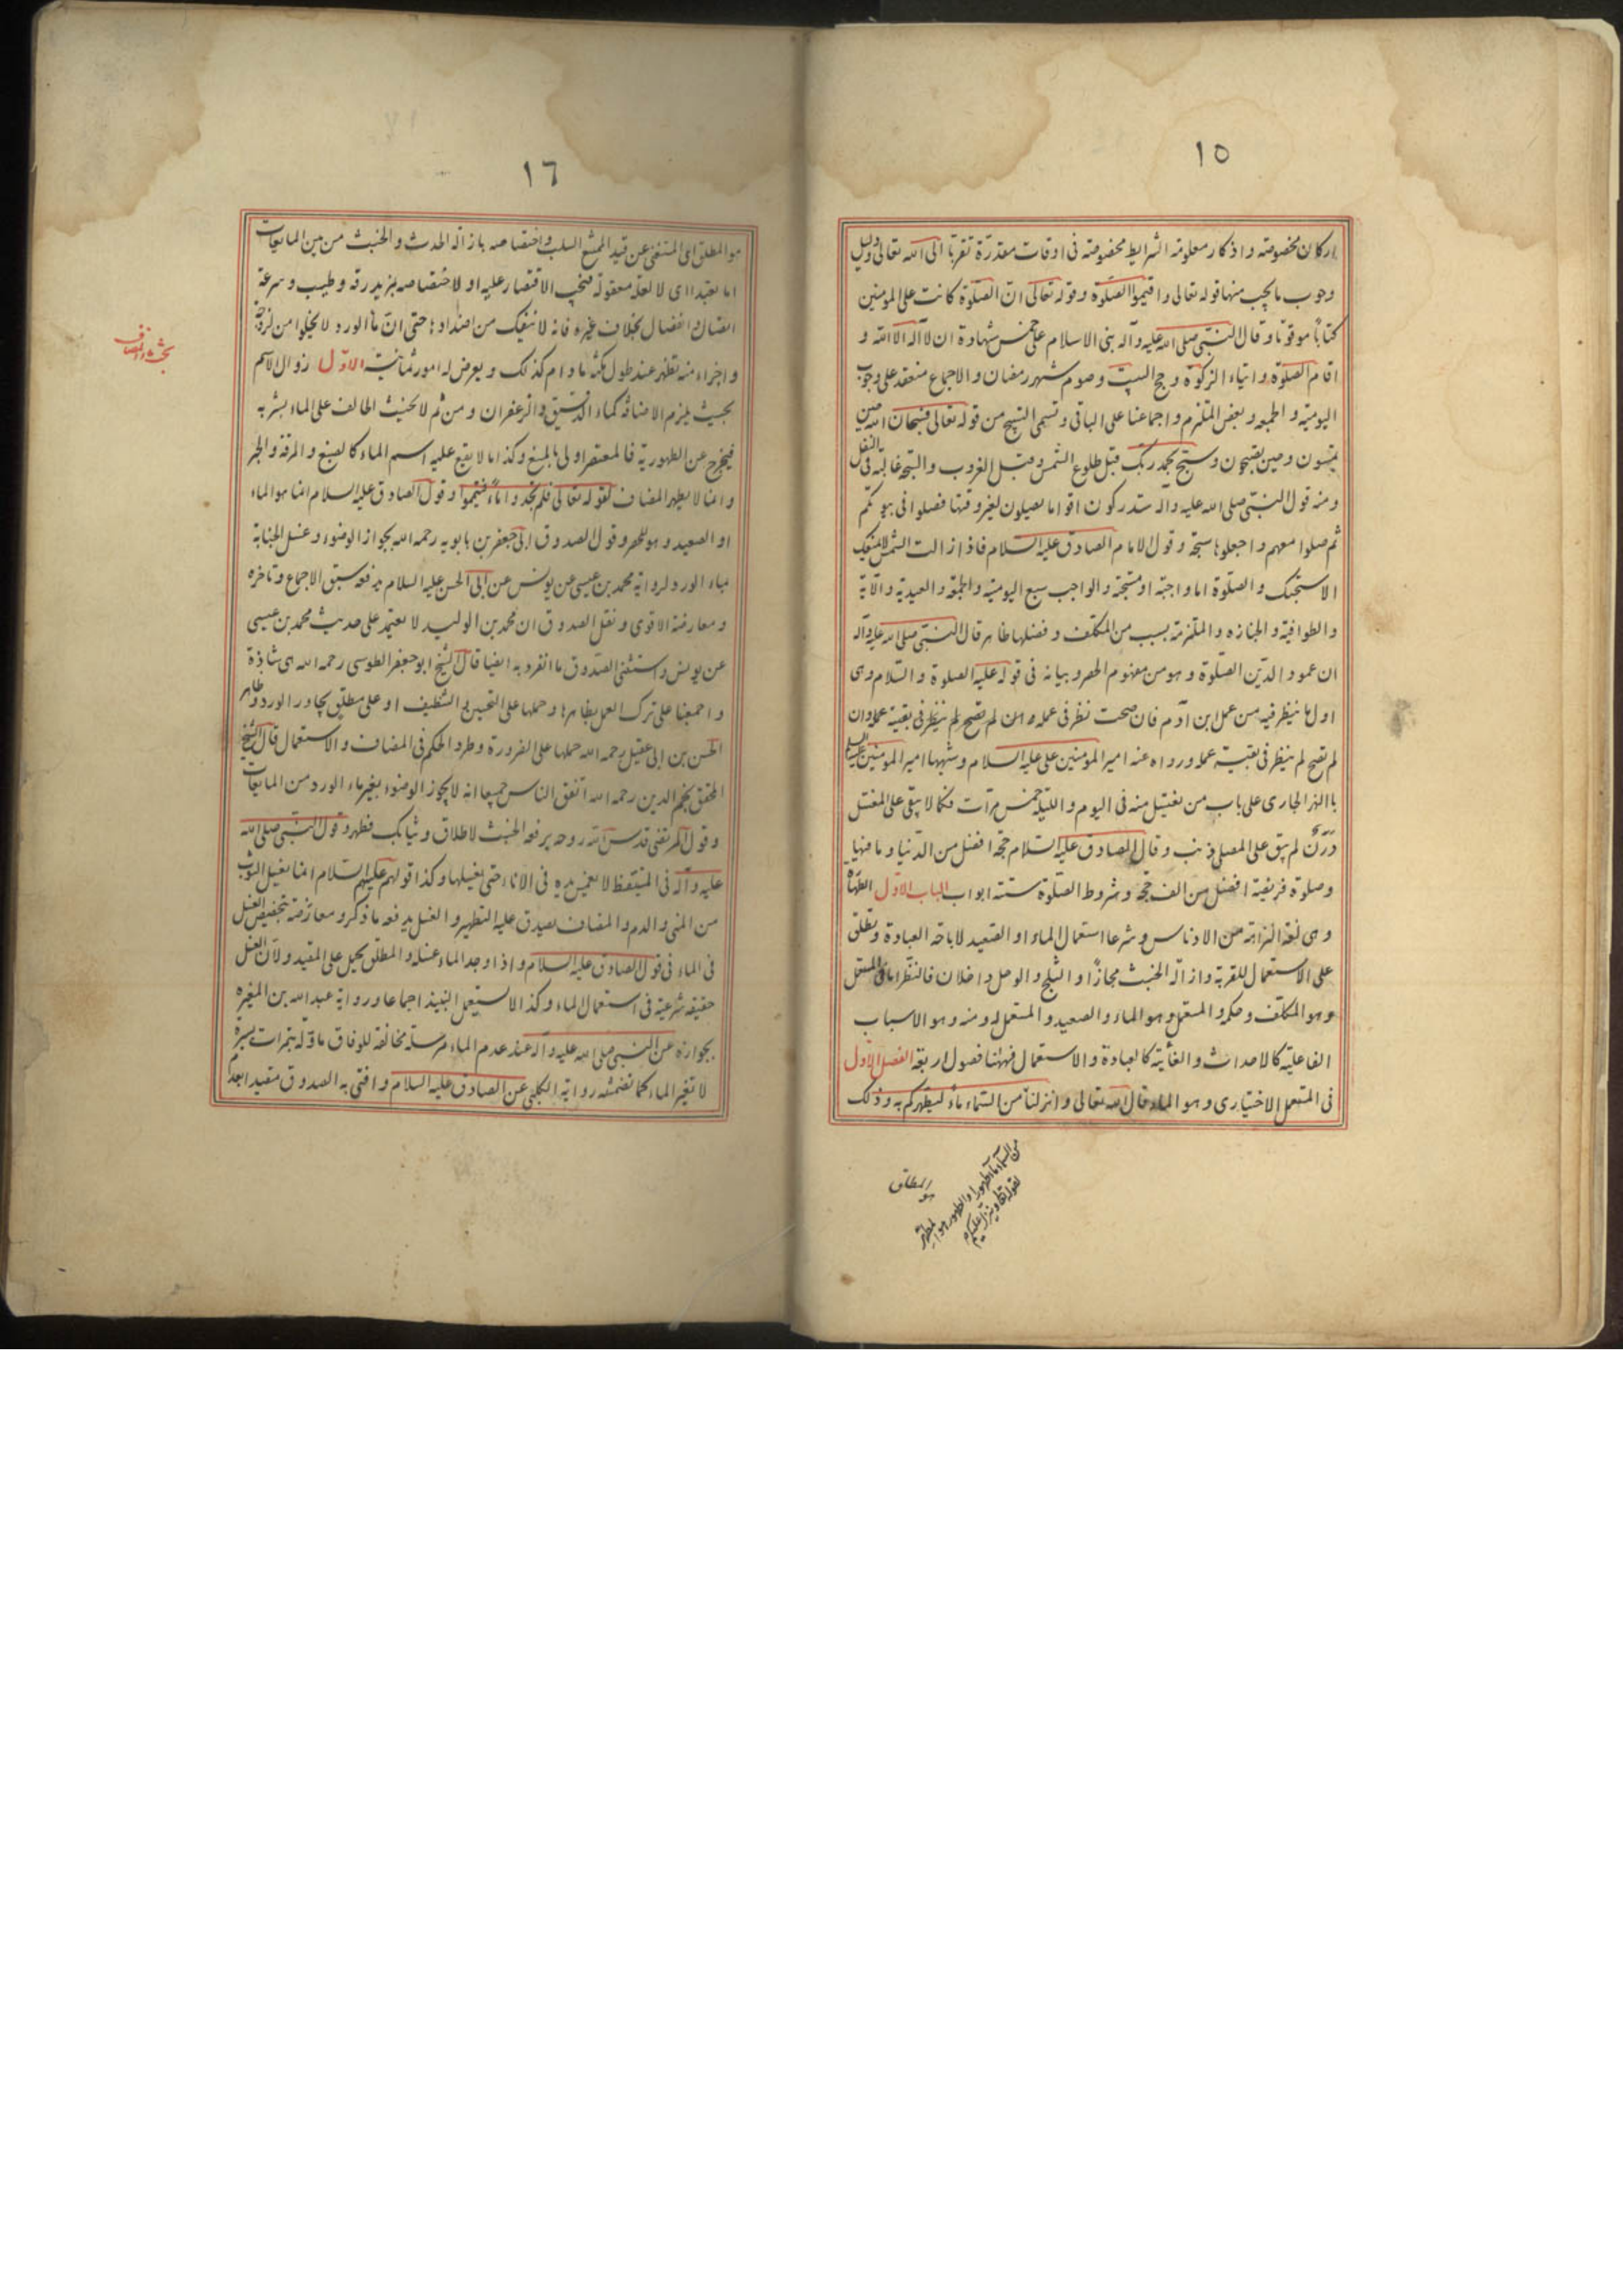 ١٥
اركان مخصوصة واذكار معلومة الشرايط محصوصة فى اوقات مقدّرة تقرّباً الى الله تعالى ودليل
وجوب مايجب منها قوله تعالى واقيموا الصلوة وقوله تعالى انّ الصلوة كانت على المومنين
كتاباً موقوتا وقال النبى صلى الله عليه وآله بنى الاسلام على خمس شهادة ان لا آله الا الله و
اقام الصلوة وايتاء الزكوة وحج البيت وصوم شهر رمضان والاجماع منعقد على وجوب
اليومية والجمعه وبعض الملتزم واجماعنا على الباقى وتسمى التسبيح من قوله تعالى فسبحان الله حين
تمسون وحين تصبحون وسبح بحمد ربك قبل طلوع الشمس وقبل الغروب والسبحة غالبة فى النفل
ومنه قول النبى صلى الله عليه واله ستدركون اقواما يصلون لغير وقتها فصلوا فى بيوتكم
ثم صلوا معهم واجعلوها سبحة وقول الامام الصادق عليه السلام فاذا زالت الشمس لا يمنعك
الا سبحتك والصلوة اما واجبة او مستحبة والواجب سبع اليومية والجمعة والعيدية والآية
والطوافية والجنازه والملتزمة بسبب من المكلف وفضلها ظاهر قال النبى صلى الله عليه وآله
ان عمود الدين الصلوة وهو من مفهوم الحصر وبيانه فى قوله عليه الصلوة والسلام وهى
اول ما ينظر فيه من عمل ابن آدم فان صحت نظر فى عمله وان لم تصح لم ينظر فى بقية عمله وان
لم تصح لم ينظر فى بقية عمله ورواه عنه امير المومنين على عليه السلام وشبهها امير المومنين عليه السلم
باالنهر الجارى على باب من يغتسل منه فى اليوم والليلة خمس مرآت فكما لا يبقى على المغتسل
درن لم يبق على المصلى ذنب وقال الصادق عليه السلام حجة افضل من الدنيا وما فيها
وصلوة فريضة افضل من الف حجة وشروط الصلوة ستة ابواب الباب الاول الطهارة
وهى لغة النزاهة من الادناس وشرعا استعمال الماء او الصعيد لاباحة العبادة وتطلق
على الاستعمال للقربة وازالة الخبث مجازاً او الثلج والوحل داخلان فالنظر اما فى المستعمل
وهو المكلف وحكمه والمستعمل وهو الماء والصعيد والمستعمل له ومنه وهو الاسباب
الفاعلية كالاحداث والغائية كالعبادة والاستعمال فههنا فصول اربعة الفصل الاول
فى المستعمل الاختيارى وهو الماء قال الله تعالى وانزلنا من السماء ماء ليطهركم به وذلك
هو المطلق
لقوله تعا وينزل عليكم
من السماء ماء طهورا والطهور هو المطهر
١٦
هو المطلق اى المستغنى عن قيد الممتنع السلب واختصاصه بازالة الحدث والخبث من بين المايعات
اما تعبدا اى لا لعلة معقولة فيجب الاقتصار عليه او لاختصاصه بمزيد رقة وطيب وسرعة
اتصال وانفصال بخلاف غيره فانه لا ينفك من اضدادها حتى انّ ماء الورد لا يخلوا من لزوجة
واجزاء منه تظهر عند طول مكثه ما دام كذلك ويعرض له امور ثمانية الاول زوال الاسم
بحيث يلزم الاضافة كماء الدقيق والزعفران ومن ثم لا يحنث الحالف على الماء بشربه
فيخرج عن الطهورية فالمعتصر اولى بالمنع وكذا ما لا يقع عليه اسم الماء كالصبغ والمرقة والحبر
وانما لا يطهر المضاف لقوله تعالى فلم تجدوا ماءً فتيمموا وقول الصادق عليه السلام انما هو الماء
او الصعيد وهو للحصر وقول لصدوق ابى جعفر بن بابويه رحمه الله بجواز الوضوء وغسل الجنابة
بماء الورد لرواية محمد بن عيسى عن يونس عن ابى الحسن عليه السلام يدفعه سبق الاجماع وتاخره
ومعارضة الاقوى ونقل الصدوق ان محمد بن الوليد لا يعتمد على حديث محمد بن عيسى
عن يونس واستثنى الصدوق ما انفرد به ايضا قال الشيخ ابو جعفر الطوسى رحمه الله هى شاذة
واجمعنا على ترك العمل بظاهرها وحملها على التحسين و التنظيف او على مطلق يجاور الورد وظاهر
الحسن بن ابى عقيل رحمه الله حملها على الضرورة وطرد الحكم فى المضاف والاستعمال قال الشيخ
المحقق نجم الدين رحمه الله اتفق الناس جميعا انه لا يجوز الوضوء بغير ماء الورد من المايعات
وقول المرتضى قدس الله روحه يرفع الخبث لاطلاق وثيابك فطهر وقول النبى صلى الله
عليه وآله فى المستيقظ لا يغمس يده فى الاناء حتى يغسلها وكذا قولهم عليهم السلام انما يغسل الثوب
من المنى والدم والمضاف يصدق عليه التطهير والغسل يدفعه ما ذكر ومعارضته بتخصيص الغسل
فى الماء فى قول الصادق عليه السلام واذا وجد الماء غسله والمطلق يحمل على المقيد ولان الغسل
حقيقة شرعية فى استعمال الماء وكذا لا يستعمل النبيذ اجماعا ورواية عبد الله بن المغيره
بجوازه عن النبى صلى الله عليه وآله عند عدم الماء مرسلة مخالفة للوفاق ماولة بتمرات يسيرة
لا تغير الماء كما تضمنته رواية الكلبى عن الصادق عليه السلام وافتى به الصدوق مقيدا بعدم
بحث المضاف